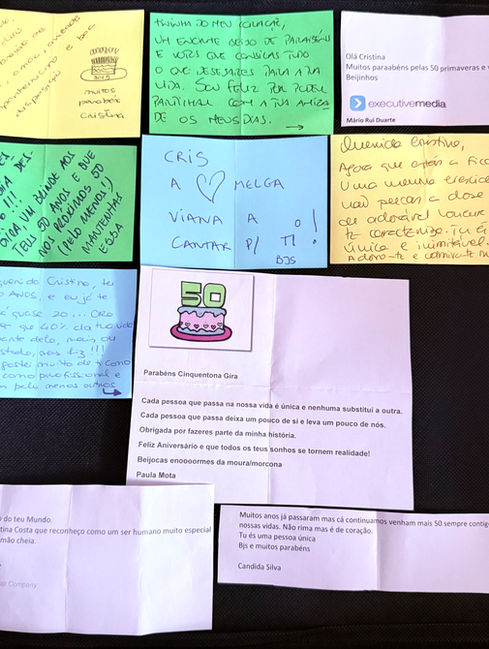 muitos
parabéns
Cristina
DO MEU CORAÇÃO,
UM ENORME BEIJO DE PARABÉNS
E VOTOS QUE CONSIGAS TUDO
O QUE DESEJARES PARA A TUA
VIDA. SOU FELIZ POR PODER
PARTILHAR COM A TUA AMIZA
DE OS MEUS DIAS.
Olá Cristina
Muitos paraabéns pelas 50 primaveras e
Beijinhos
executivemedia
Mário Rui Duarte
UM BRINDE AOS
TEUS 50 ANOS E QUE
NOS PRÓXIMOS 50
(PELO MENOS!)
MANTENHAS
ESSA
CRIS
A MELGA
VIANA A
CANTAR P/ TI!
BJS
Querida Cristina,
Agora que estás a
Uma mulher
não percas a dose
de adorável loucura
te caracteriza. Tu és
única e inimitável.
Adoro-te e
Cristina, tu
ANOS, e eu já te
quase 20... ORA
que 40% da tua vida
fiz!!!
muito de ti como
como profissional e
pelo menos outros
50
Parabéns Cinquentona Gira
Cada pessoa que passa na nossa vida é única e nenhuma substitui a outra.
Cada pessoa que passa deixa um pouco de si e leva um pouco de nós.
Obrigada por fazeres parte da minha história.
Feliz Aniversário e que todos os teus sonhos se tornem realidade!
Beijocas enoooormes da moura/morcona
Paula Mota
do teu Mundo.
tina Costa que reconheço como um ser humano muito especial
mão cheia.
Company
Muitos anos já passaram mas cá continuamos venham mais 50 sempre contig
nossas vidas. Não rima mas é de coração.
Tu és uma pessoa única
Bjs e muitos parabéns
Candida Silva